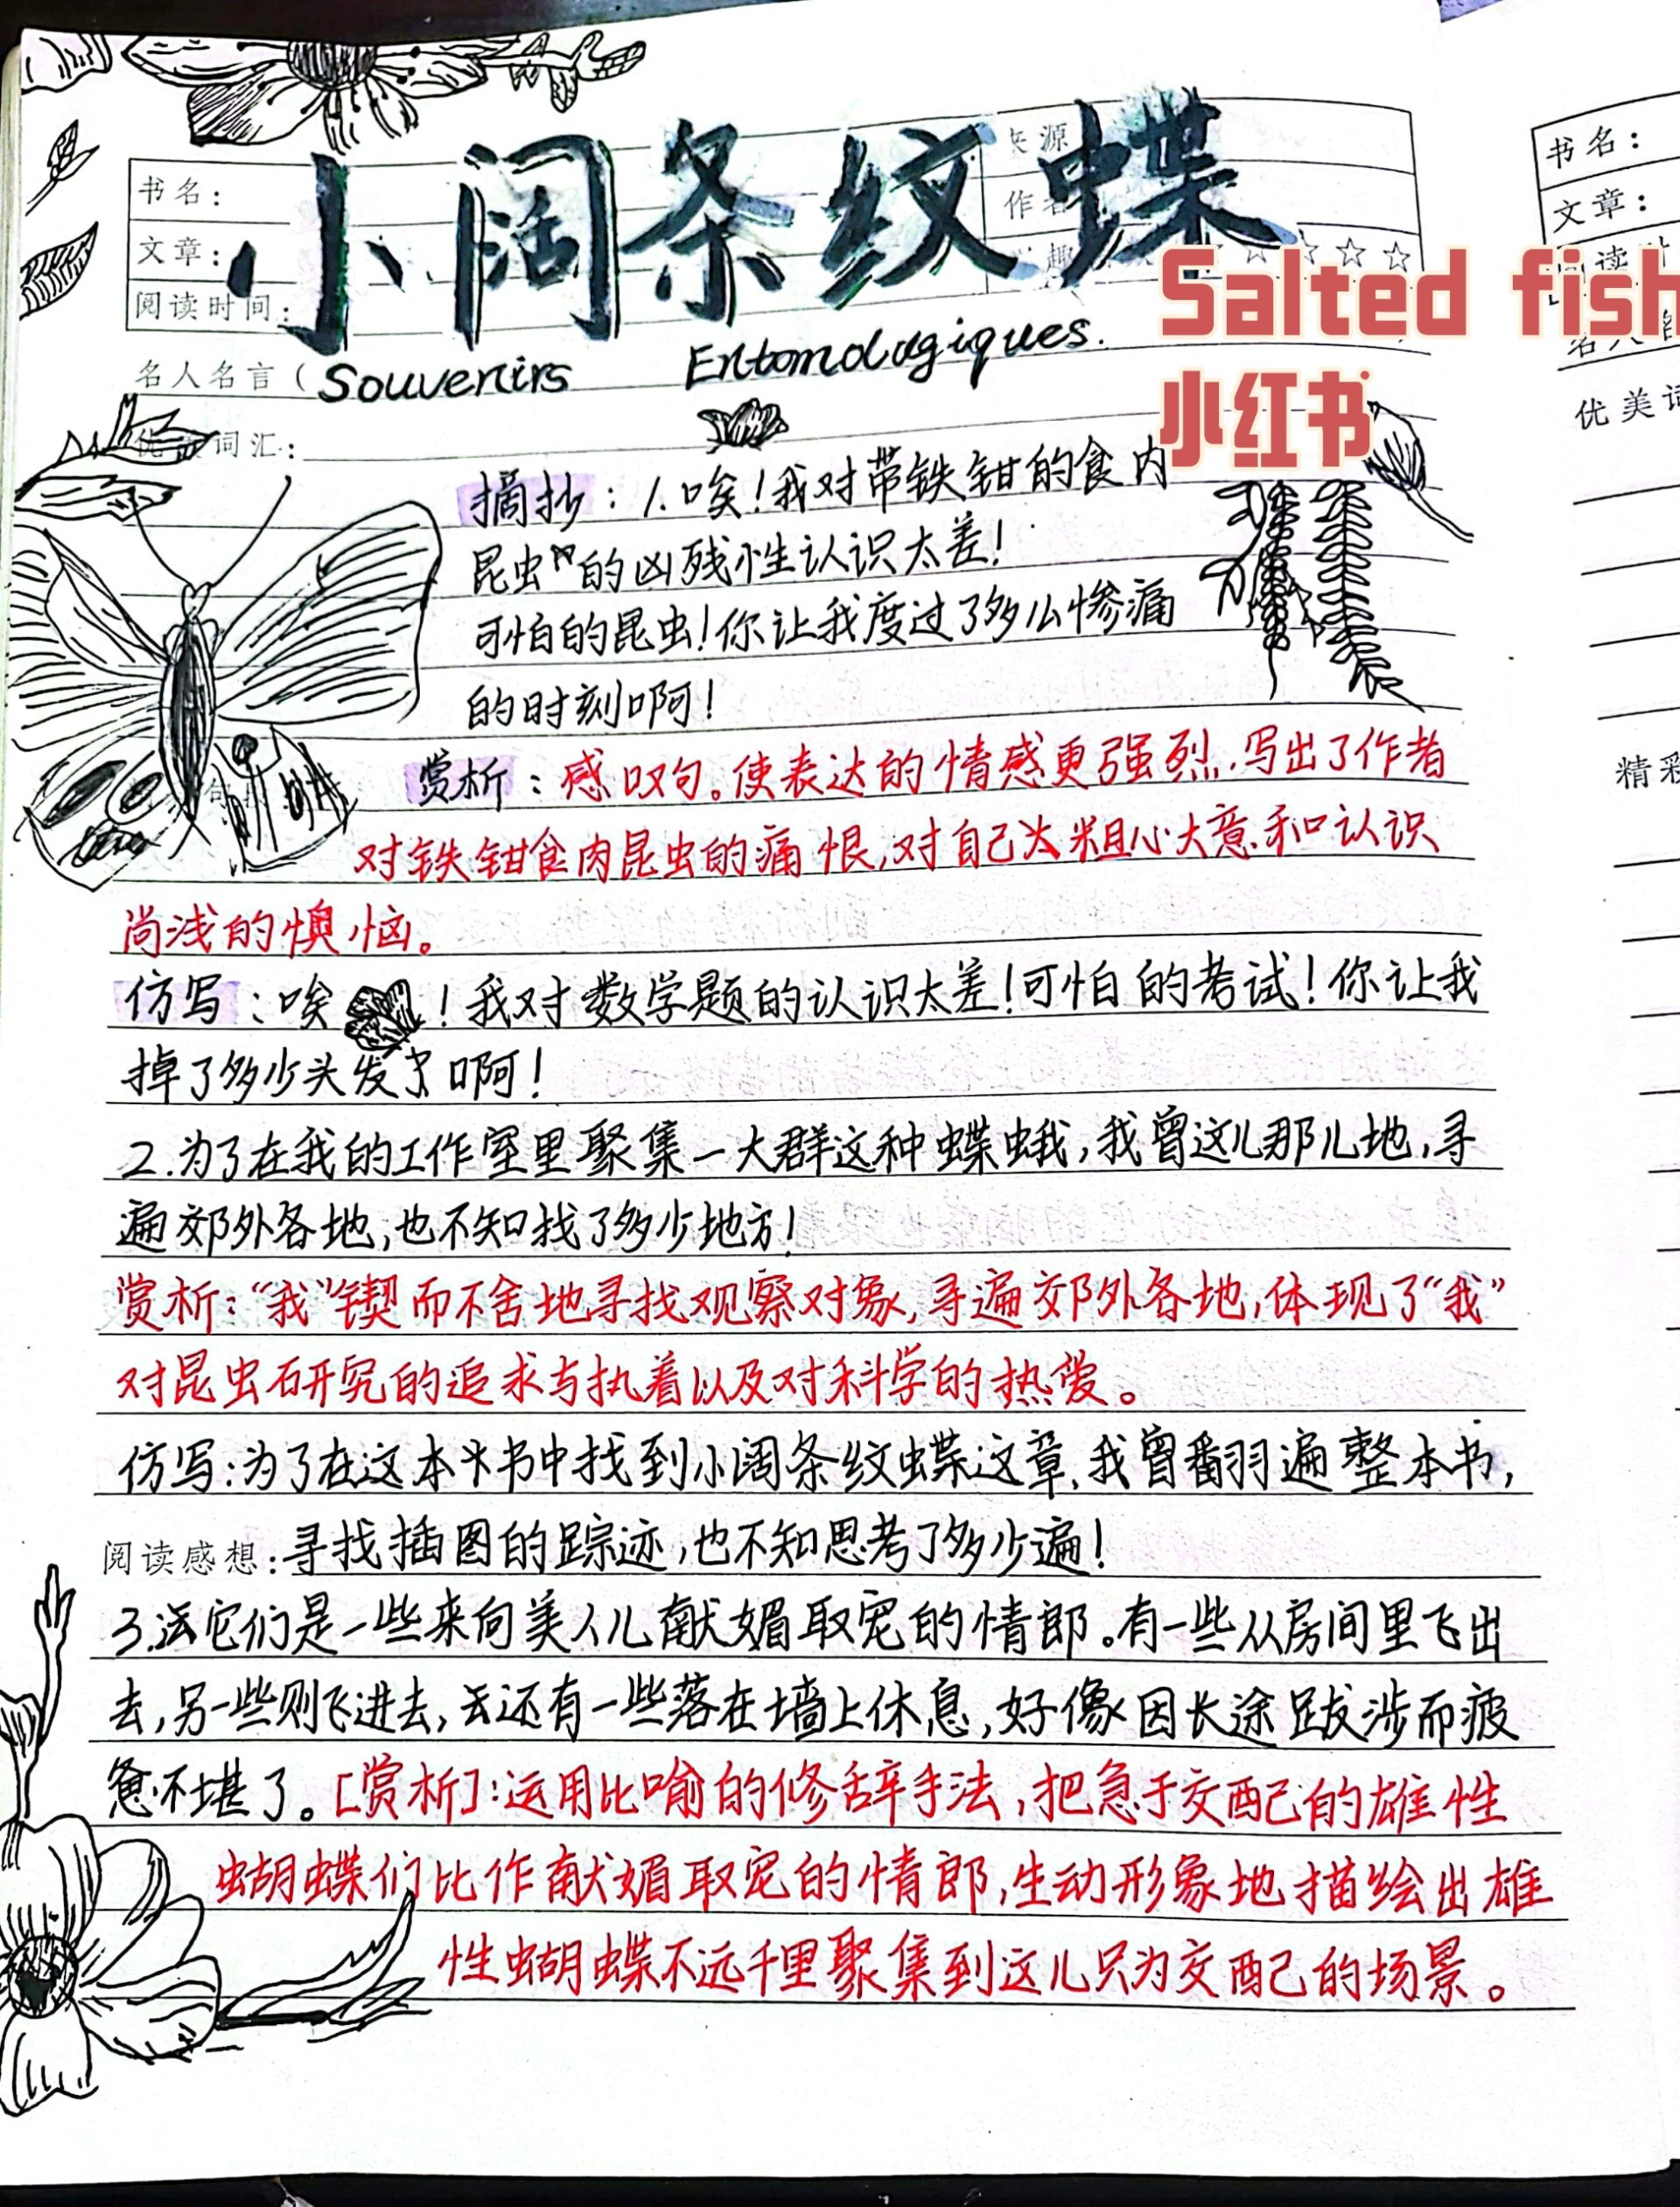 小阔条纹蝶
书名：
来源
文章：
作者
趣
阅读时间：
Salted fish
小红书
名人名言（Souvenirs Entomologiques.
词汇：
摘抄：1.唉！我对带铁钳的食肉
昆虫的凶残性认识太差！
可怕的昆虫！你让我度过了多么惨痛
的时刻啊！
赏析：感叹句。使表达的情感更强烈.写出了作者
对铁钳食肉昆虫的痛恨，对自己太粗心大意和认识
尚浅的懊恼。
仿写：唉！我对数学题的认识太差！可怕的考试！你让我
掉了多少头发啊！
2.为了在我的工作室里聚集一大群这种蝶蛾，我曾这儿那儿地，寻
遍郊外各地，也不知找了多少地方！
赏析：“我”锲而不舍地寻找观察对象，寻遍郊外各地，体现了“我”
对昆虫研究的追求与执着以及对科学的热爱。
仿写：为了在这本书中找到小阔条纹蝶这章，我曾翻遍整本书，
阅读感想：寻找插图的踪迹，也不知思考了多少遍！
3.它们是一些来向美人儿献媚取宠的情郎。有一些从房间里飞出
去，另一些则飞进去，还有一些落在墙上休息，好像因长途跋涉而疲
惫不堪了。[赏析]：运用比喻的修辞手法，把急于交配的雄性
蝴蝶们比作献媚取宠的情郎，生动形象地描绘出雄
性蝴蝶不远千里聚集到这儿只为交配的场景。
书名：
文章：
优美词
精彩